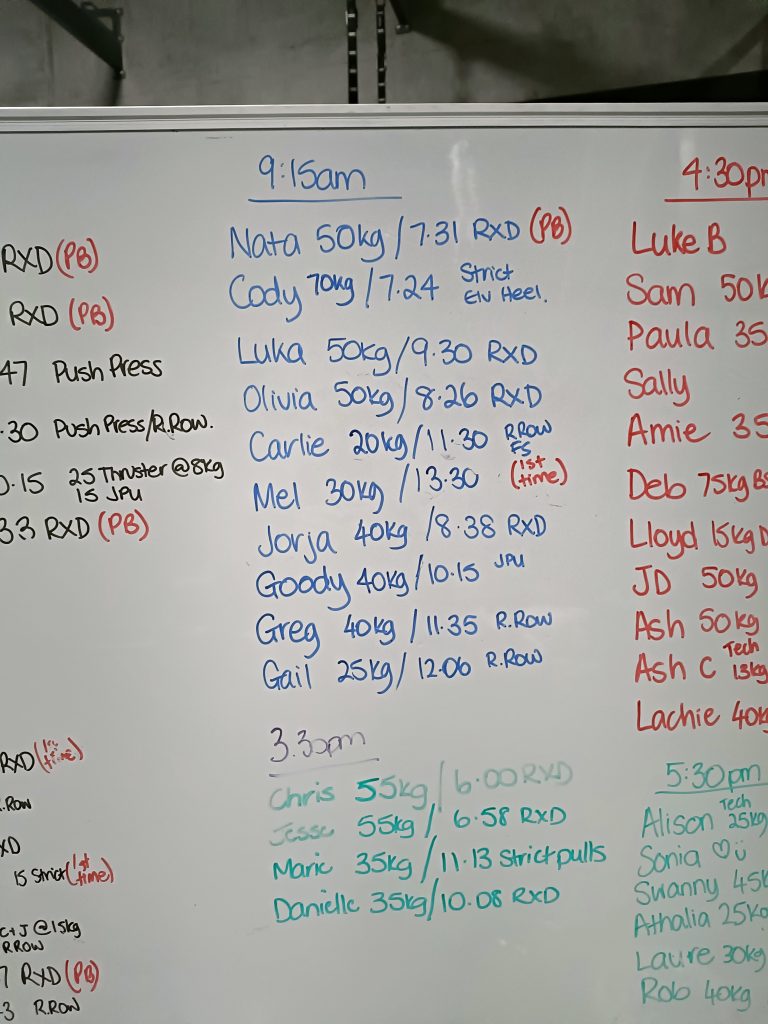 RXD (PB)
RXD (PB)
47 Push Press
.30 Push Press/R.Row.
0.15 25 Thruster @8kg
15 JPU
33 RXD (PB)
RXD (1st time)
.Row
XD
15 Strict (1st time)
C+J @15kg
RROW
7 RXD (PB)
3 R.ROW
9:15am
Nata 50kg / 7.31 RXD (PB)
Cody 70kg / 7.24 Strict
Elv Heel.
Luka 50kg / 9.30 RXD
Olivia 50kg / 8.26 RXD
Carlie 20kg / 11.30 R.ROW
FS
Mel 30kg / 13.30 (1st time)
Jorja 40kg / 8.38 RXD
Goody 40kg / 10.15 JPU
Greg 40kg / 11.35 R.Row
Gail 25kg / 12.06 R.Row
3.30pm
Chris 55kg / 6.00 RXD
Jesse 55kg / 6.58 RXD
Marie 35kg / 11.13 Strict pulls
Danielle 35kg / 10.08 RXD
4:30pm
Luke B
Sam 50k
Paula 35
Sally
Amie 35
Deb 75kg BS
Lloyd 15kg D
JD 50kg
Ash 50kg
Ash C Tech
13kg
Lachie 40k
5:30pm
Alison Tech
25kg
Sonia ♡
Swanny 45k
Athalia 25kg
Laure 30kg
Rob 40kg